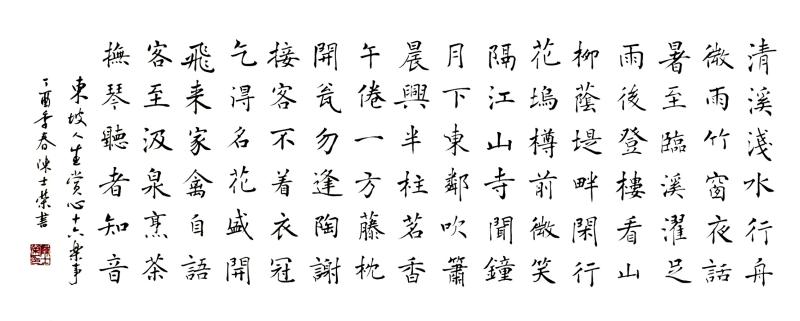 清溪淺水行舟
微雨竹窗夜話
暑至臨溪濯足
雨後登樓看山
柳蔭堤畔閑行
花塢樽前微笑
隔江山寺聞鐘
月下東鄰吹簫
晨興半柱茗香
午倦一方藤枕
開瓮勿逢陶謝
接客不着衣冠
乞得名花盛開
飛来家禽自語
客至汲泉烹茶
撫琴聽者知音
東坡人生賞心十六樂事
丁酉年春陳士榮書